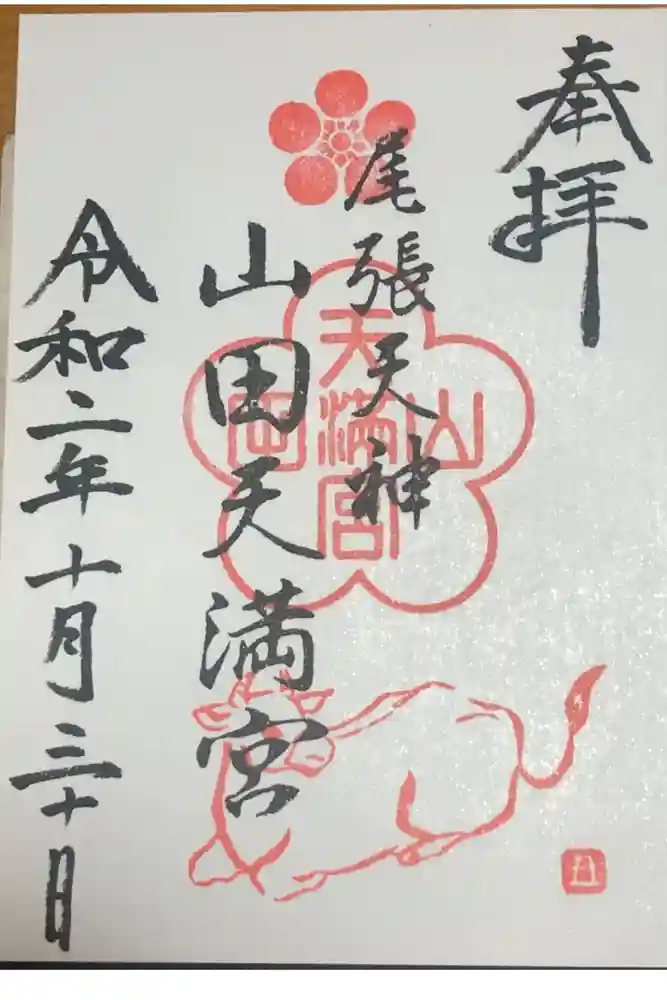 奉拝
尾張天神
山田天満宮
令和二年十月三十日
山田
天満宮
丑